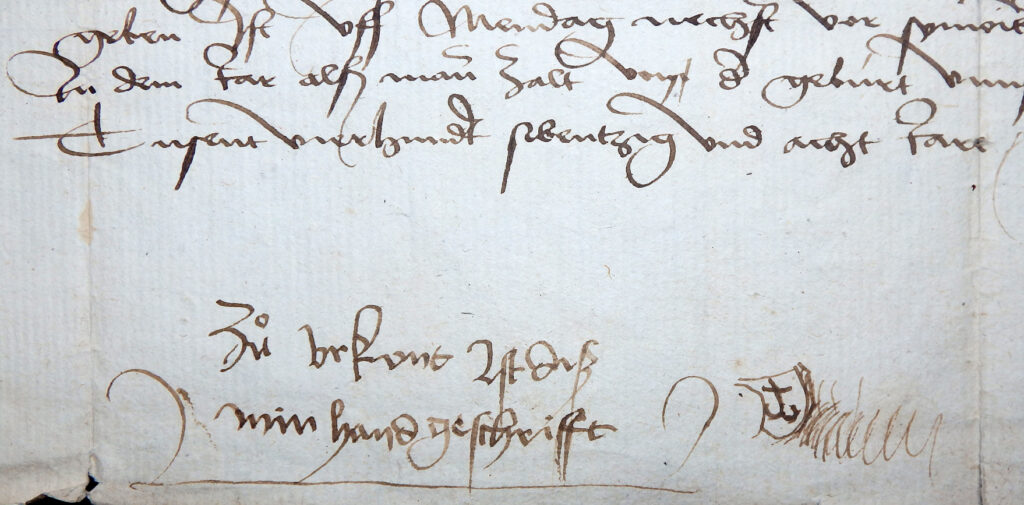 geben Ist vff Mendag nechst vor
In dem Iar alsz man zalt von d geburt
Tusent vierhundt sibentzig vnd acht Iare
Zů vrkont Ist disz
min handgeschrifft